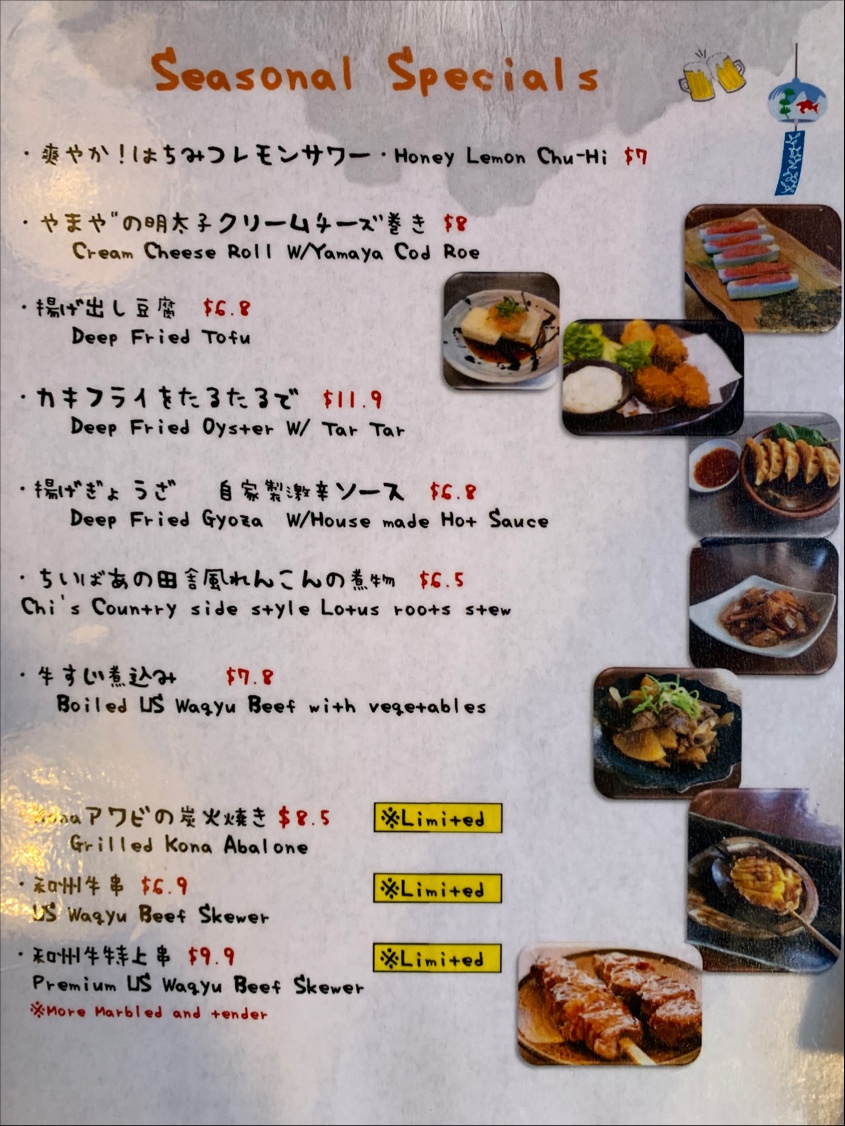 Seasonal Specials
・爽やか!はちみつレモンサワー・Honey Lemon Chu-Hi $7
・やまや"の明太子クリームチーズ巻き $8
Cream Cheese Roll W/Yamaya Cod Roe
・揚げ出し豆腐 $6.8
Deep Fried Tofu
・カキフライをたるたるで $11.9
Deep Fried Oyster W/ Tar Tar
・揚げぎょうざ 自家製激辛ソース $6.8
Deep Fried Gyoza W/House made Hot Sauce
・ちいばあの田舎風れんこんの煮物 $6.5
Chi's Country side style Lotus roots stew
・牛すじ煮込み $7.8
Boiled US Wagyu Beef with vegetables
Konaアワビの炭火焼き $8.5 ※Limited
Grilled Kona Abalone
・和州牛串 $6.9 ※Limited
US Wagyu Beef Skewer
・和州牛特上串 $9.9 ※Limited
Premium US Wagyu Beef Skewer
※More Marbled and tender